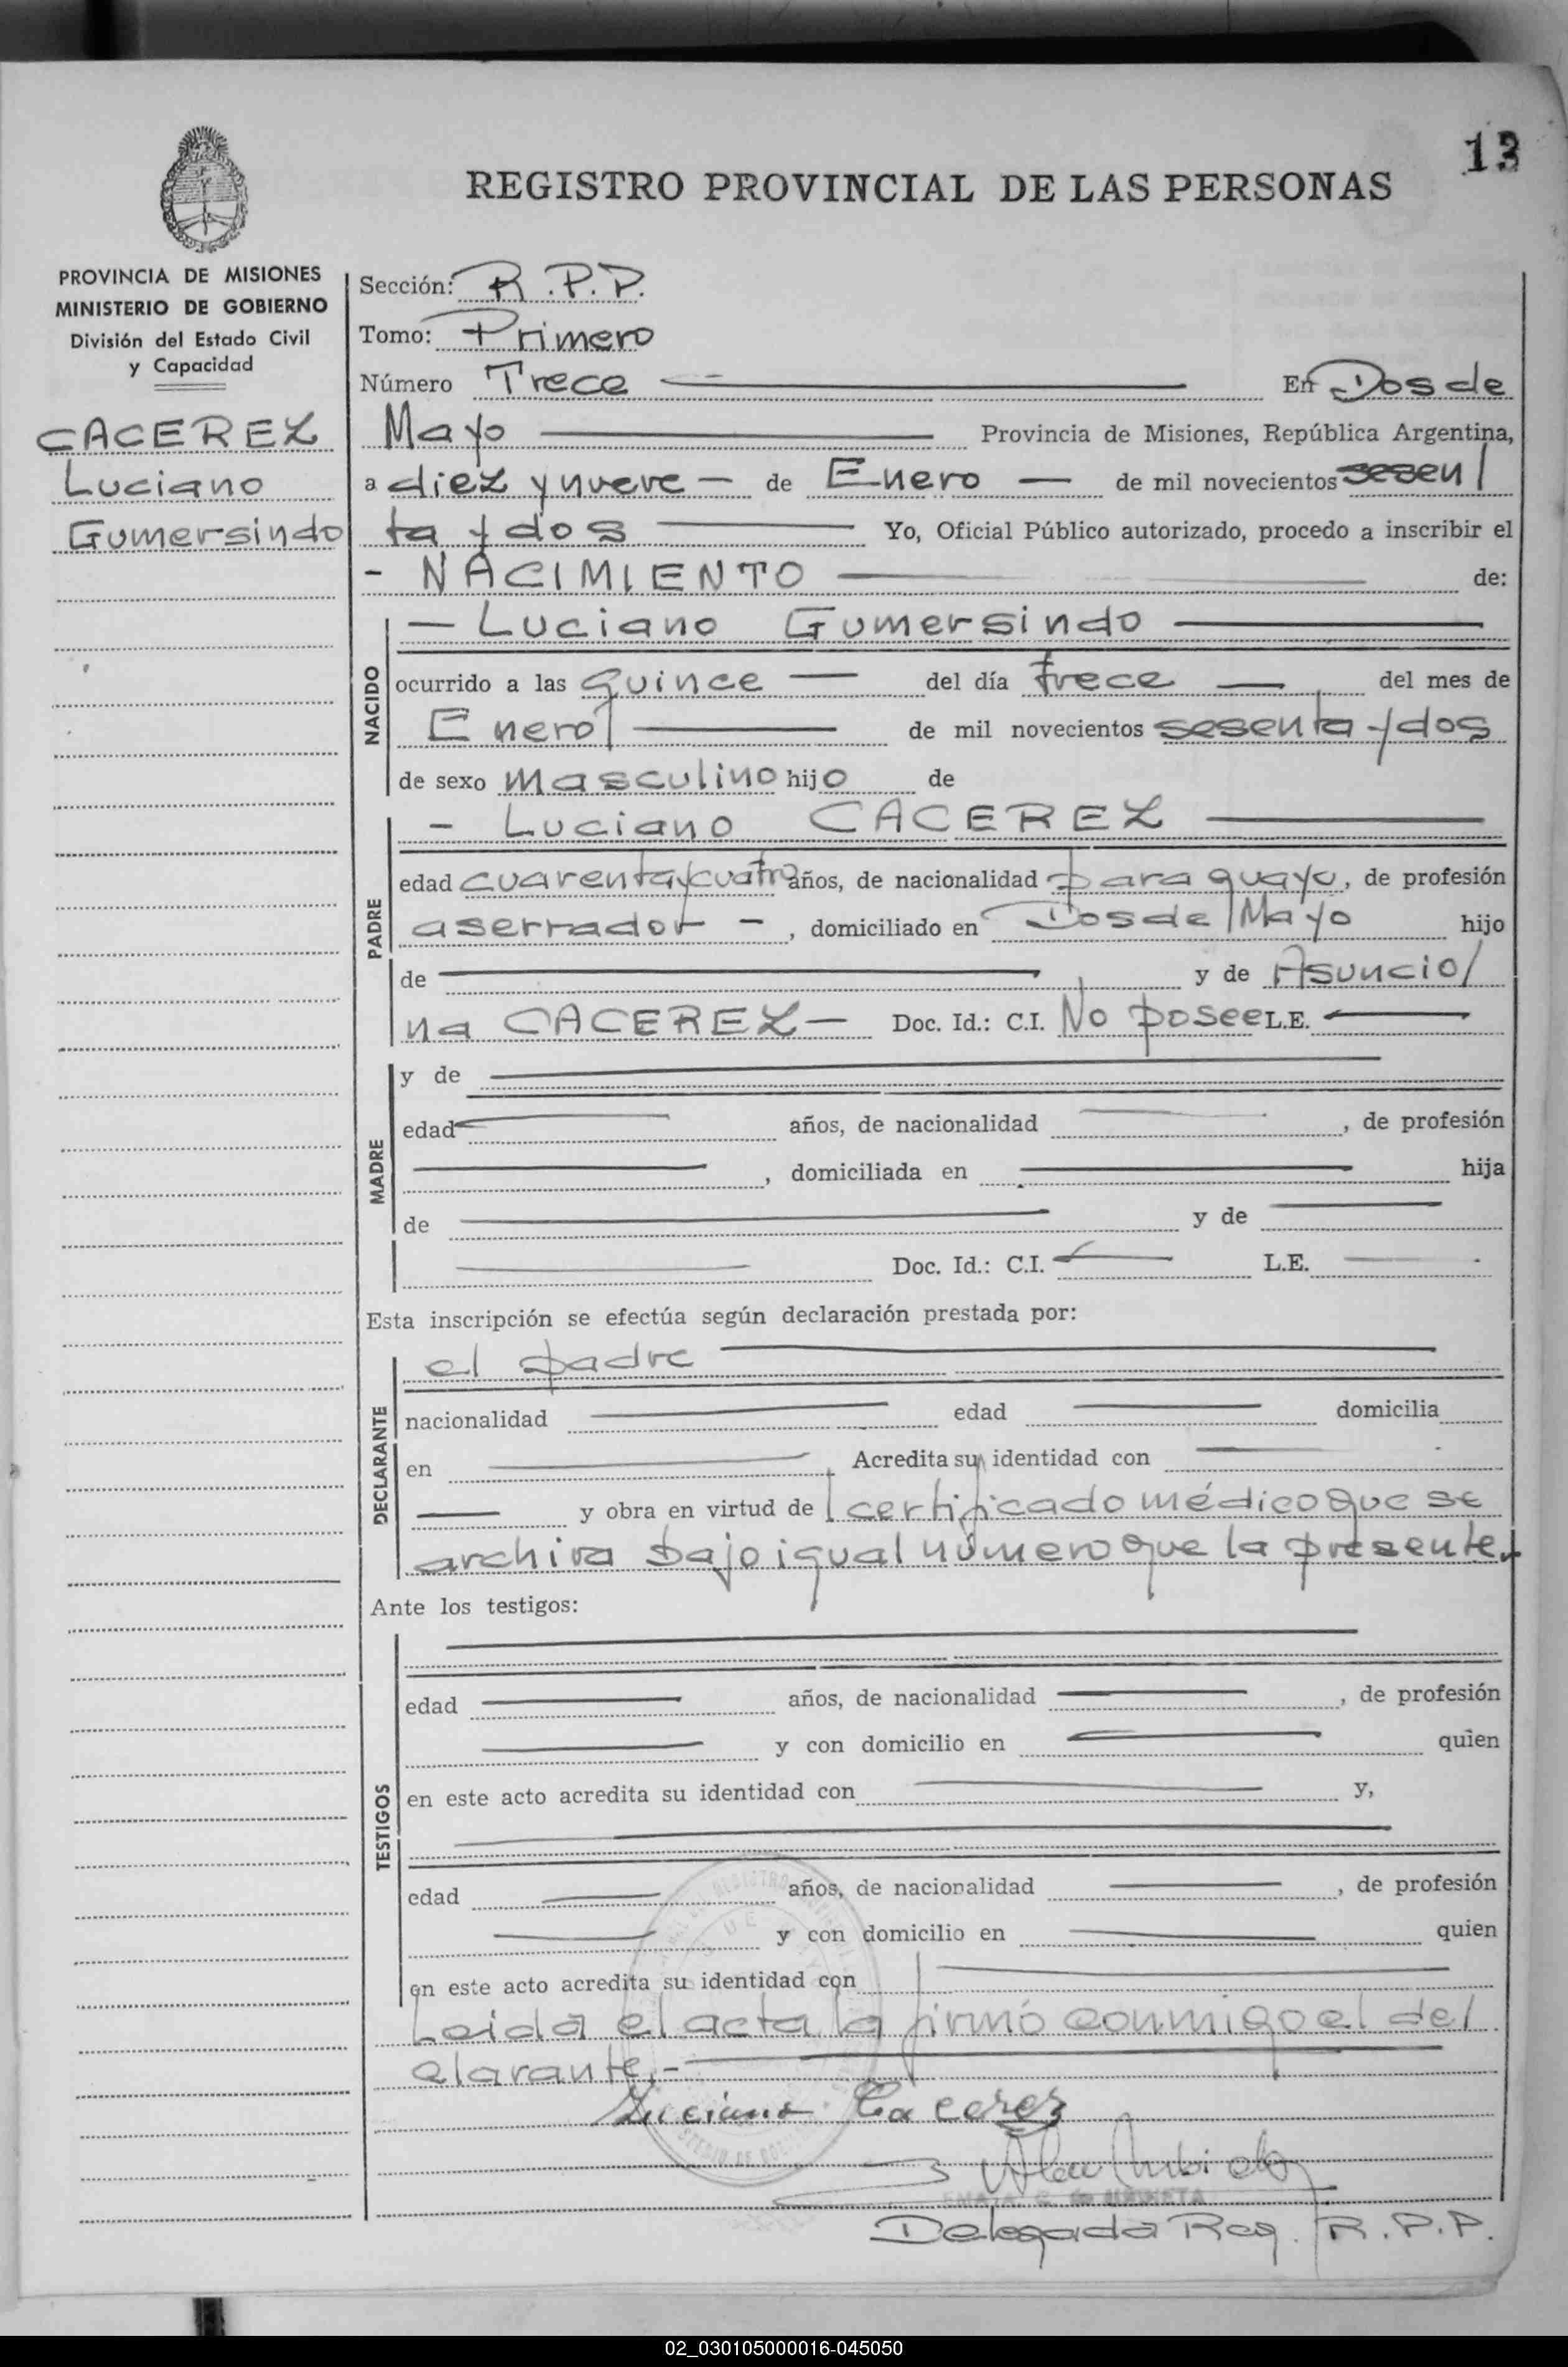 13
REGISTRO PROVINCIAL DE LAS PERSONAS
PROVINCIA DE MISIONES
MINISTERIO DE GOBIERNO
División del Estado Civil
y Capacidad
CACEREZ
Luciano
Gumersindo
Sección: R.P.P.
Tomo: Primero
Número Trece En Dos de
Mayo Provincia de Misiones, República Argentina,
a diez y nueve - de Enero - de mil novecientos sesen/
ta y dos Yo, Oficial Público autorizado, procedo a inscribir el
- NACIMIENTO de:
NACIDO
- Luciano Gumersindo
ocurrido a las quince - del día trece - del mes de
Enero de mil novecientos sesenta y dos
de sexo masculino hijo de
PADRE
- Luciano CACEREZ
edad cuarenta y cuatro años, de nacionalidad paraguayo, de profesión
aserrador -, domiciliado en Dos de Mayo hijo
de y de Asuncio/
na CACEREZ - Doc. Id.: C.I. No posee L.E.
MADRE
y de
edad años, de nacionalidad , de profesión
, domiciliada en hija
de y de
Doc. Id.: C.I. L.E.
Esta inscripción se efectúa según declaración prestada por:
DECLARANTE
el padre
nacionalidad edad domicilia
en Acredita su identidad con
y obra en virtud de certificado médico que se
archiva bajo igual número que la presente.
Ante los testigos:
TESTIGOS
edad años, de nacionalidad , de profesión
y con domicilio en quien
en este acto acredita su identidad con y,
edad años, de nacionalidad , de profesión
y con domicilio en quien
en este acto acredita su identidad con
Leida el acta la firmó conmigo el de/
clarante.-
Luciano Cacerez
Delegada Reg. R.P.P.
02_030105000016-045050